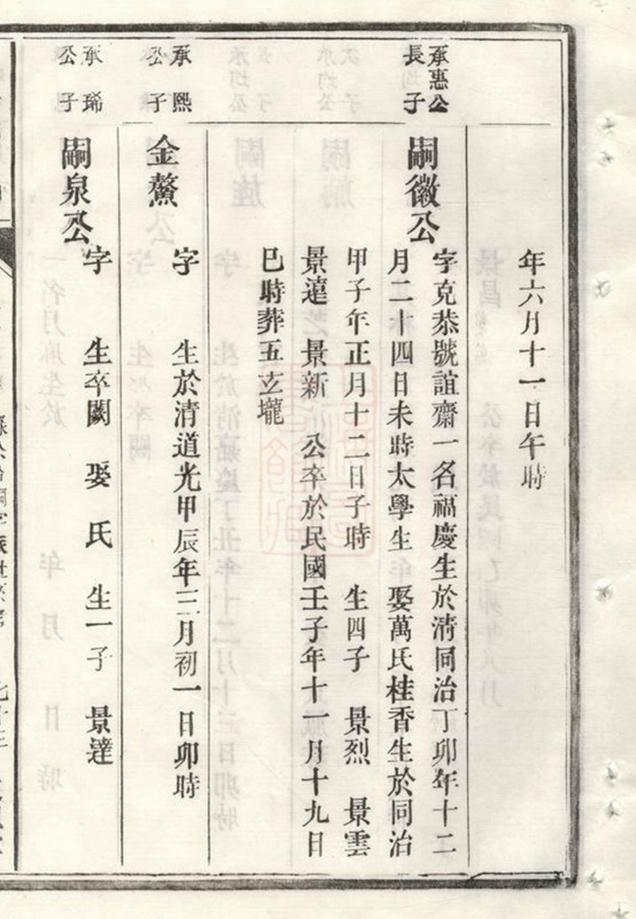 年六月十一日午時
承惠公
長子
嗣徽公
字克恭號誼齋一名福慶生於清同治丁卯年十二
月二十四日未時太學生 娶萬氏桂香生於同治
甲子年正月十二日子時 生四子 景烈 景雲
景遠 景新 公卒於民國壬子年十一月十九日
巳時葬五立壠
承熙
公子
金鰲
字 生於清道光甲辰年三月初一日卯時
承瑞
公子
嗣泉公
字 生卒闕 娶 氏 生一子 景達